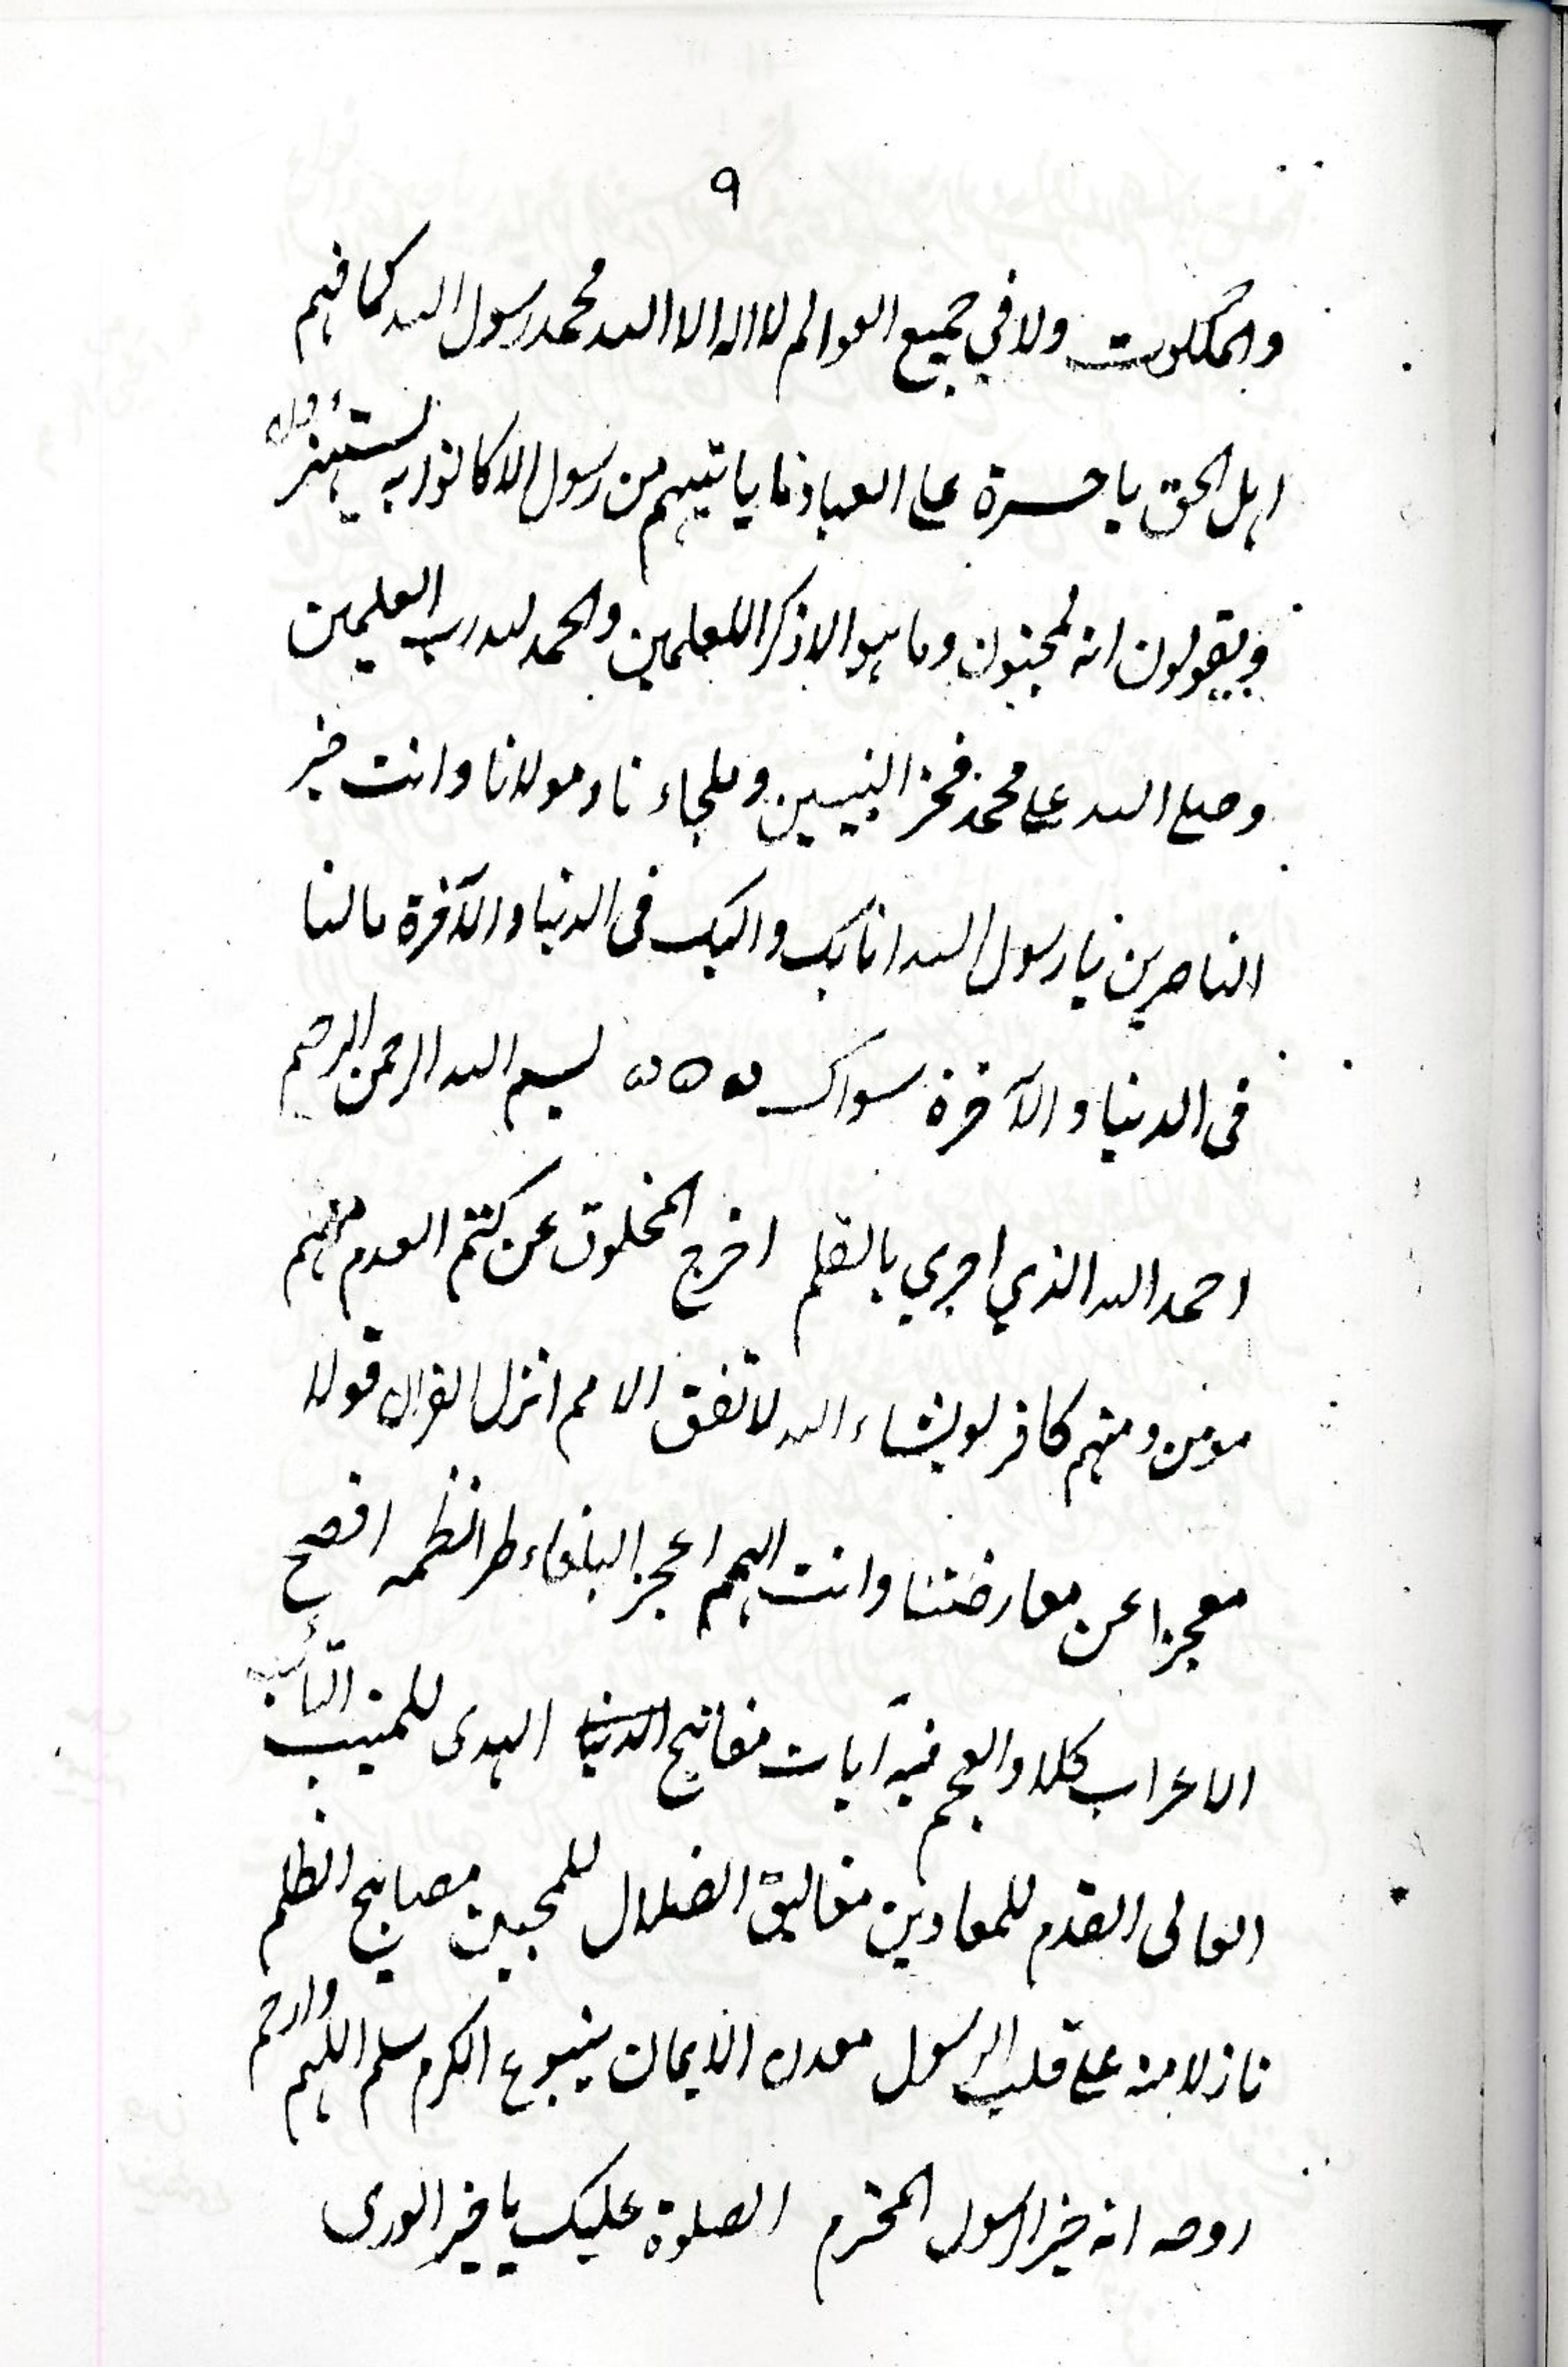 ٩
والملكوت ولا في جميع العوالم لا اله الا الله محمد رسول الله كما فهم
اہل الحق يا حسرة على العباد ما ياتيهم من رسول الا كانوا به يستهزؤن
ويقولون انه لمجنون وما هو الا ذكرا للعلمين والحمد لله رب العلمين
وصلى الله على محمد فخر النبيين وملجاء نا ومولانا وانت خير
الناصرين يا رسول الله انا بك واليك فى الدنيا والآخرة مالنا
فى الدنيا والآخرة سواك ۵۵۵ بسم الله الرحمن الرحيم
احمد الله الذي اجري بالقلم اخرج المخلوق عن كتم العدم منهم
مومن ومنهم كافر لو يشاء الله لاتفق الامم انزل القران قولا
معجزا عن معارضتنا وانت الهمم اعجز البلغاء طرا نظمه افصح
الاعراب كلا والعجم فيه آيات مفاتيح الدنيا الهدى للمنيب التائب
العالى القدم للمعادين مغاليق الضلال للمحبين مصابيح الظلم
نازلا منه على قلب الرسول معدن الايمان ينبوع الكرم سلم اللهم وارحم
روحه انه خير الرسول المحترم الصلوة عليك يا خير الورى